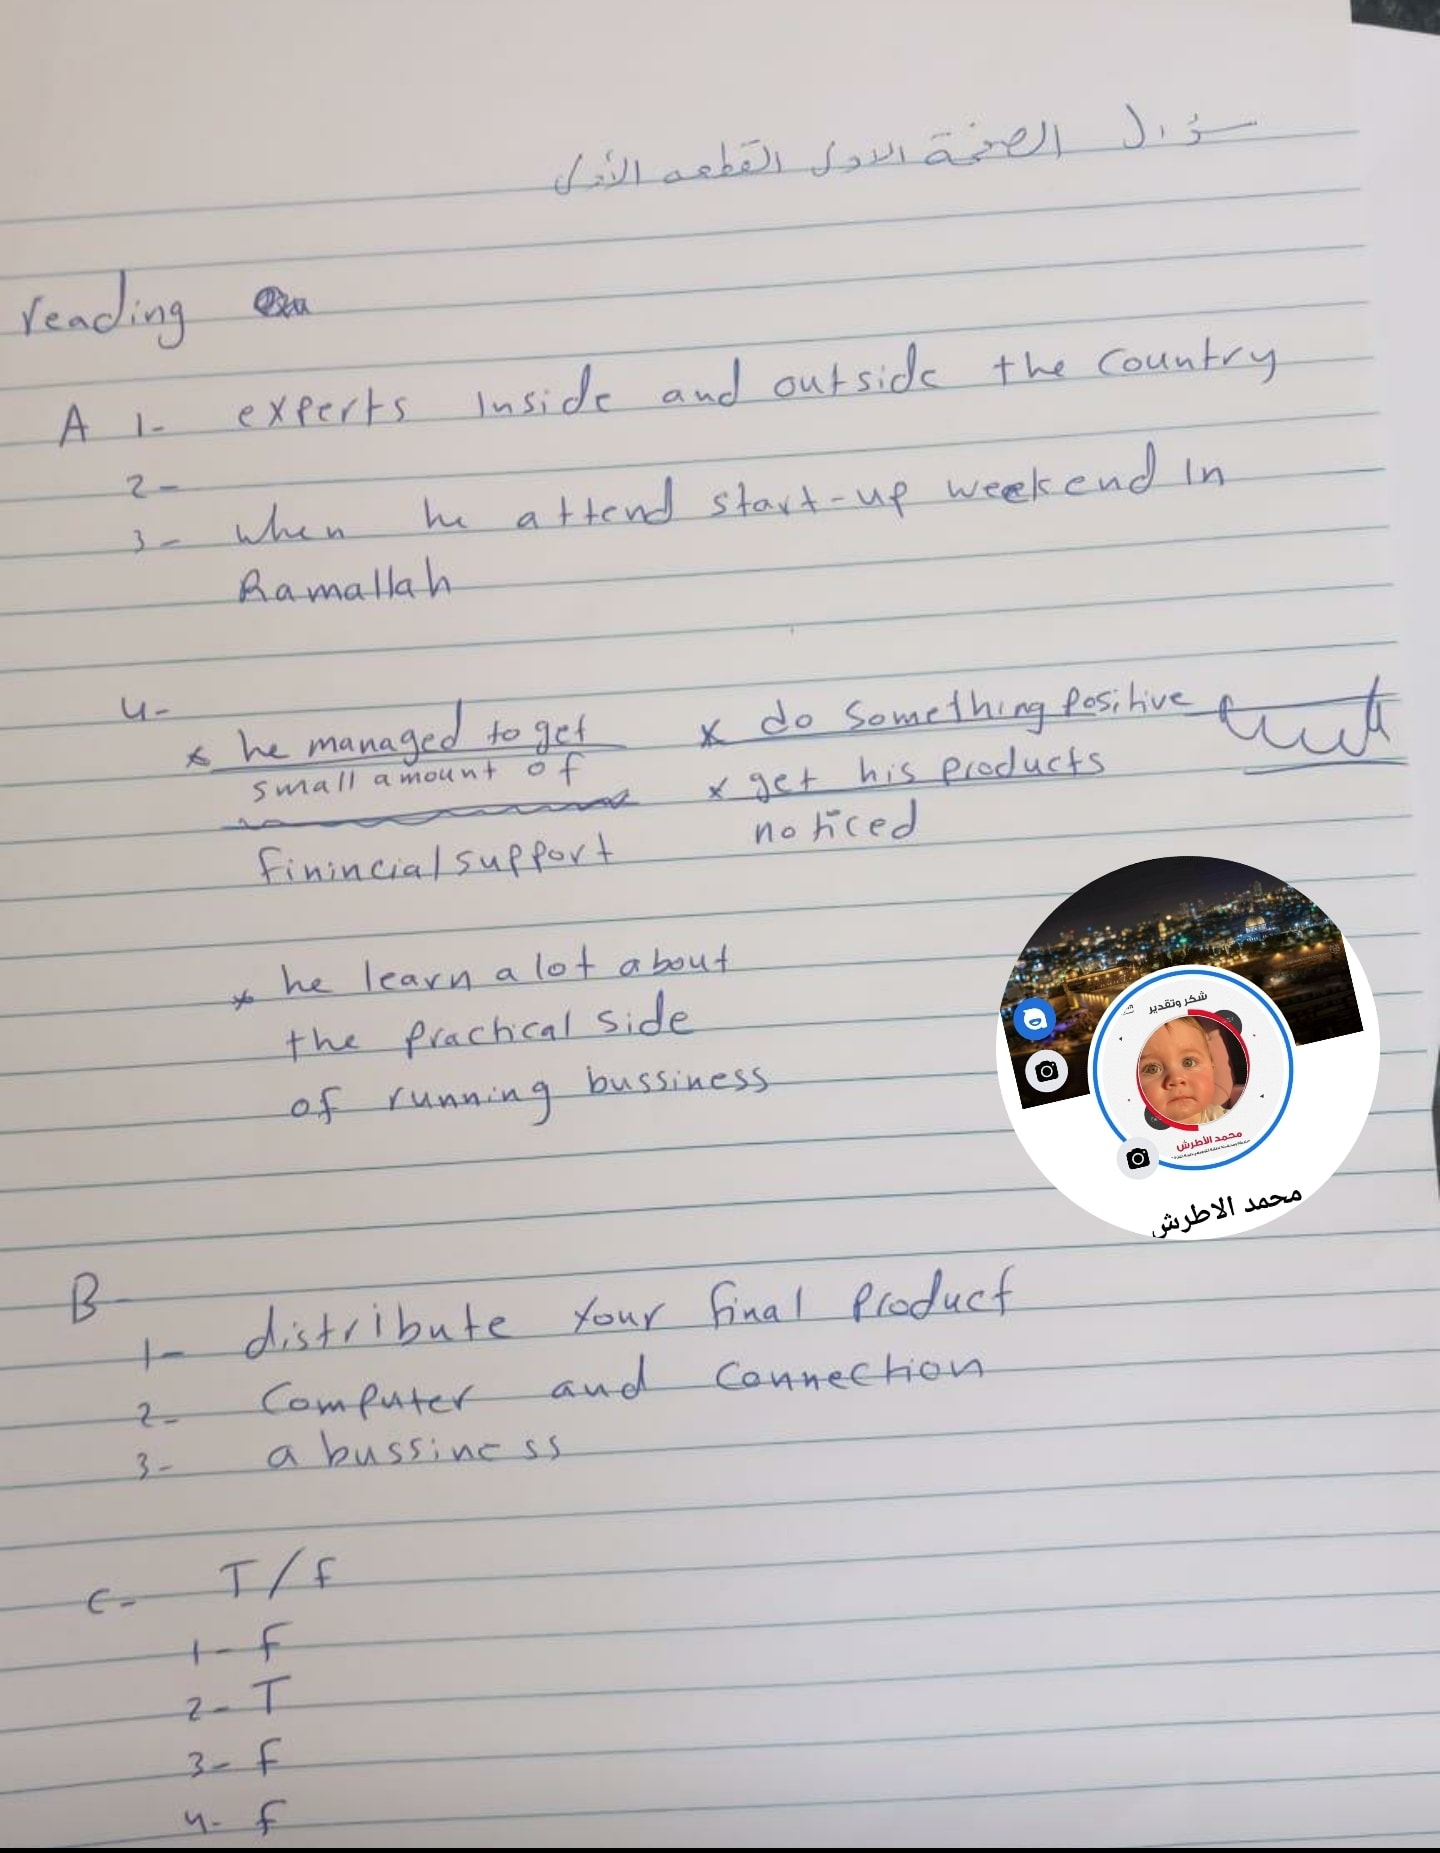 سؤال الصفحة الاولى القطعه الأولى
reading
A 1- experts Inside and outside the country
2-
3- when he attend start-up weekend In
Ramallah
4-
x he managed to get
small amount of
finincial support
x do something positive
x get his products
noticed
x he learn a lot about
the practical side
of running bussiness
شكر وتقدير
محمد الأطرش
محمد الاطرش
B
1- distribute your final product
2- Computer and Connection
3- a bussiness
c- T/f
1- f
2- T
3- f
4- f